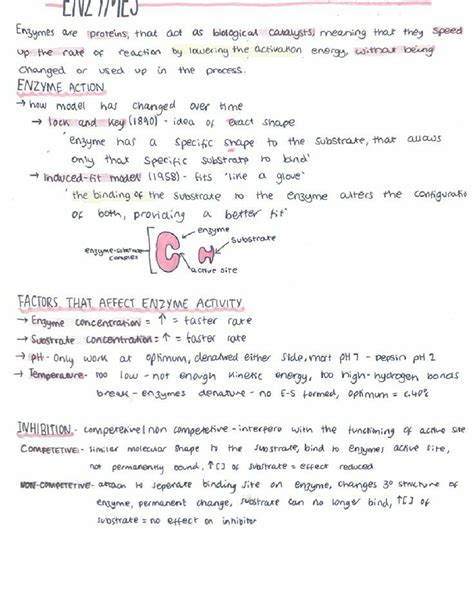 ENZYMES
Enzymes are proteins, that act as biological catalysts, meaning that they speed
up the rate of reaction by lowering the activation energy, without being
changed or used up in the process.
ENZYME ACTION
→ how model has changed over time
→ lock and key (1890) - idea of exact shape
'enzyme has a specific shape to the substrate, that allows
only that specific substrate to bind'
→ Induced-fit model (1958) - fits 'like a glove'
'the binding of the substrate to the enzyme alters the configuratio
of both, providing a better fit'
enzyme
substrate
enzyme-substrate
complex
active site
FACTORS THAT AFFECT ENZYME ACTIVITY
→ Enzyme concentration = ↑ = faster rate
→ Substrate concentration = ↑ = faster rate
→ pH - Only work at optimum, denatured either side, most pH 7 - pepsin pH 2
→ Temperature - too low - not enough kinetic energy, too high - hydrogen bonds
break - enzymes denature - no E-S formed, optimum = c.40°
INHIBITION - competetive | non competetive - interfere with the functioning of active site
COMPETETIVE - similar molecular shape to the substrate, bind to enzymes active site,
not permanently bound, ↑[] of substrate = effect reduced
NON-COMPETETIVE - attach to seperate binding site on enzyme, changes 3° structure of
enzyme, permanent change, substrate can no longer bind, ↑[] of
substrate = no effect on inhibitor